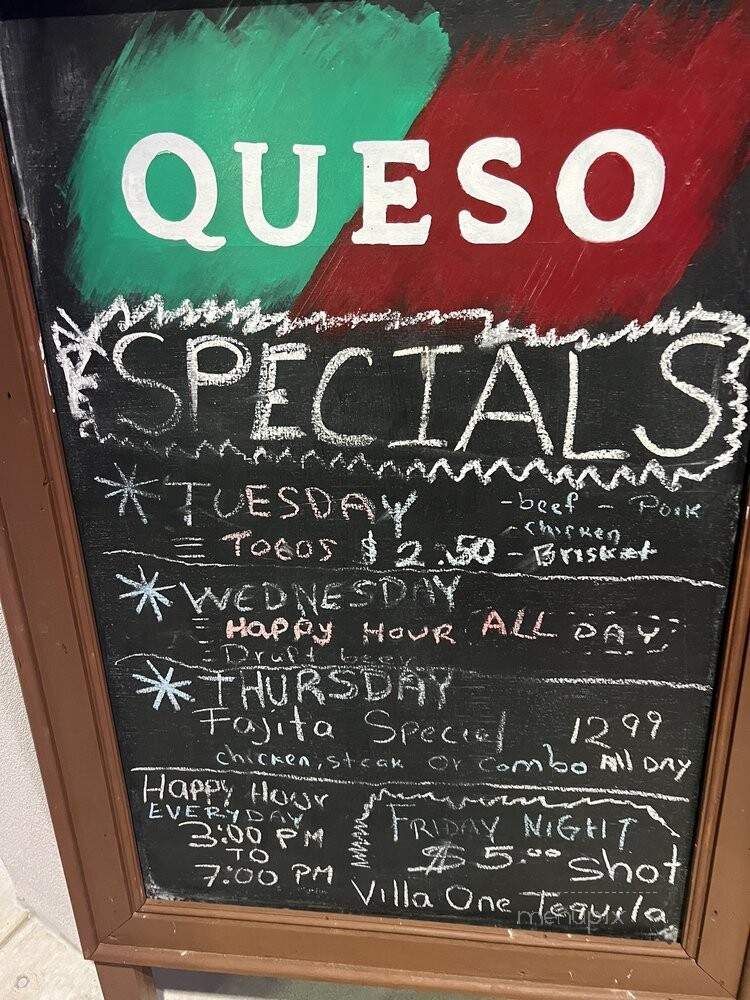 QUESO
SPECIALS
TUESDAY -beef - Pork
- chicken
Tocos $2.50 - Brisket
WEDNESDAY
HAPPY HOUR ALL DAY
- Draft beer
THURSDAY
Fajita Special 12 99
chicken, steak or combo All DAY
Happy Hour
EVERYDAY
3:00 PM
TO
7:00 PM
FRIDAY NIGHT
$5.00 shot
Villa One Tequila
menupix